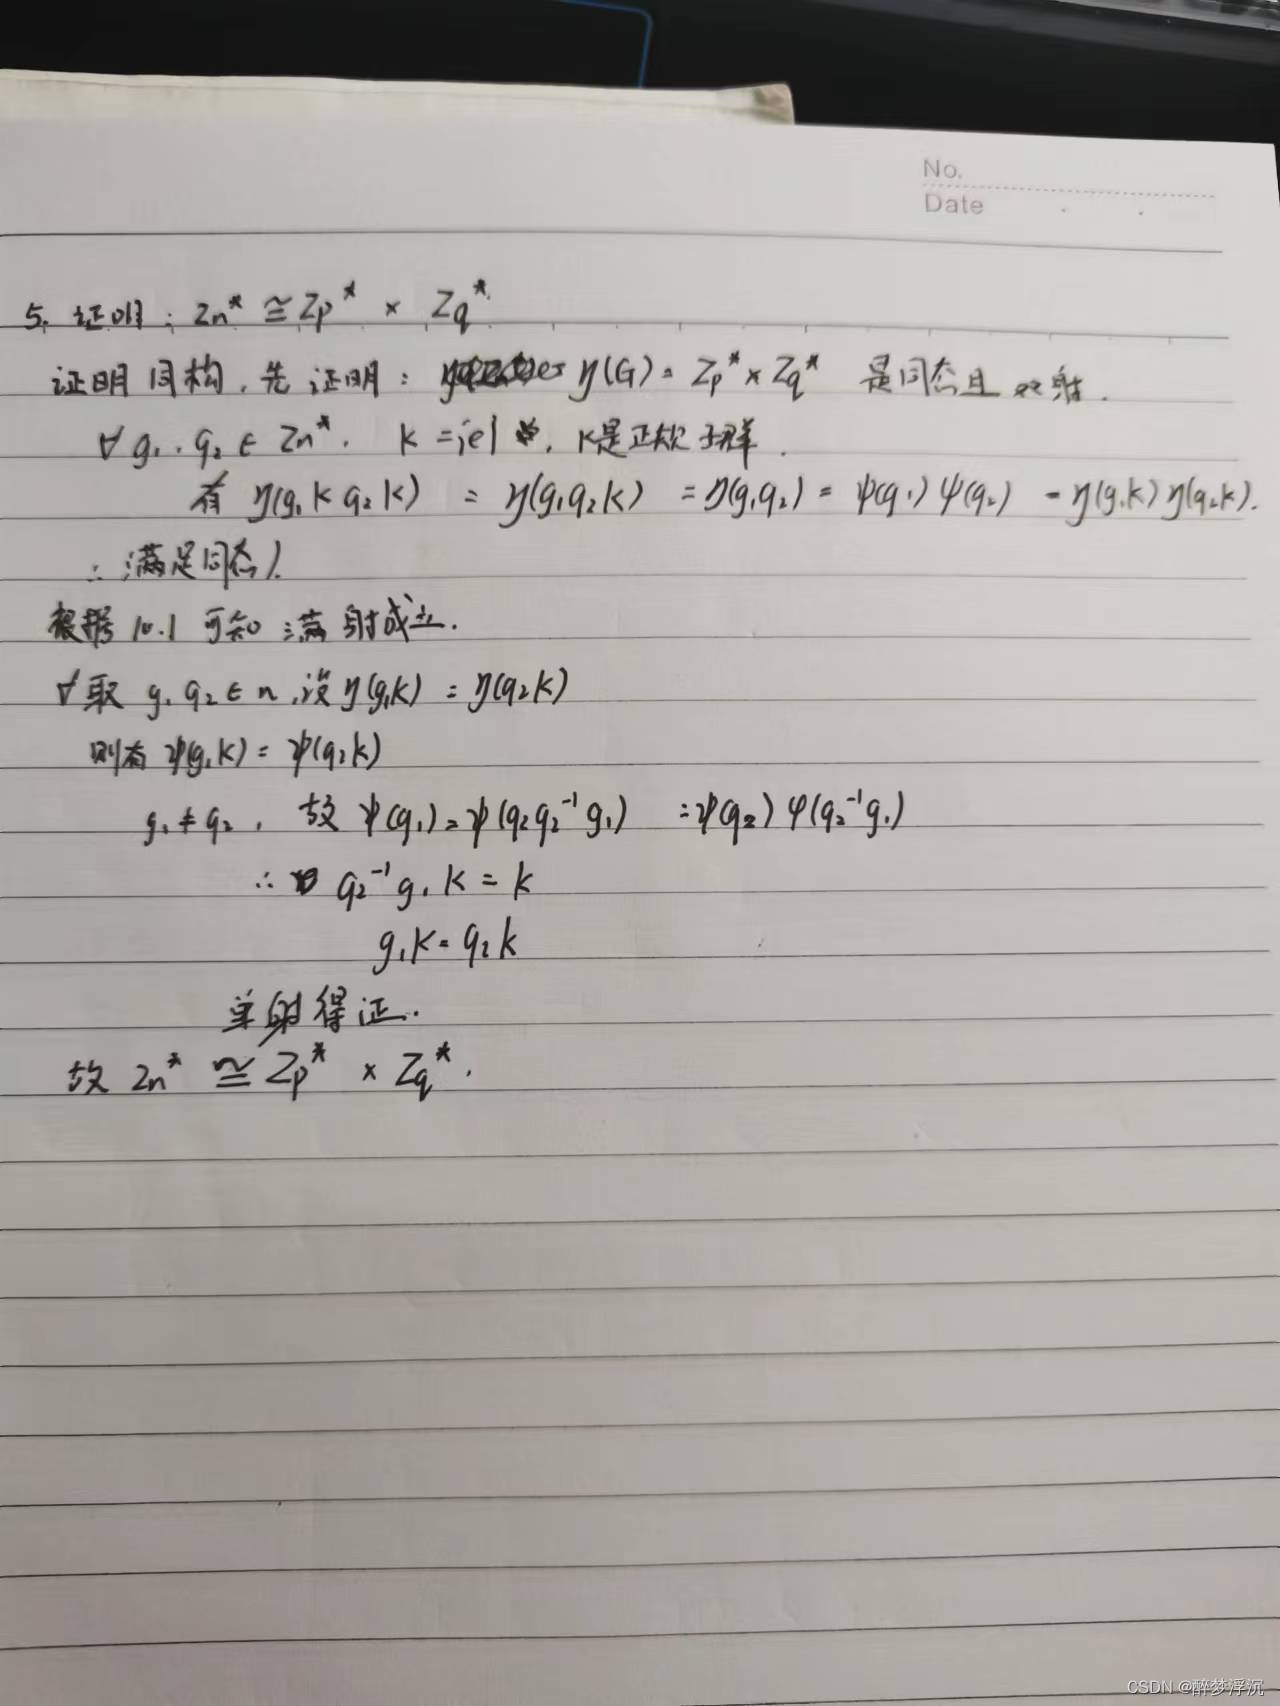 No.
Date
5. 证明: Zn* ≅ Zp* × Zq*
证明同构,先证明: η(G) = Zp* × Zq* 是同态且双射.
∀ g₁, g₂ ∈ Zn*. K = {e}, K是正规子群.
有 η(g₁K g₂K) = η(g₁g₂K) = η(g₁g₂) = ψ(g₁)ψ(g₂) = η(g₁K)η(g₂K).
∴ 满足同态).
根据10.1可知满射成立.
∀取 g₁ g₂ ∈ n, 设η(g₁K) = η(g₂K)
则有 ψ(g₁K) = ψ(g₂K)
g₁ ≠ g₂, 故 ψ(g₁) = ψ(g₂g₂⁻¹g₁) = ψ(g₂)ψ(g₂⁻¹g₁)
∴ g₂⁻¹g₁K = K
g₁K = g₂K
单射得证.
故 Zn* ≅ Zp* × Zq*.
CSDN @醉梦浮沉